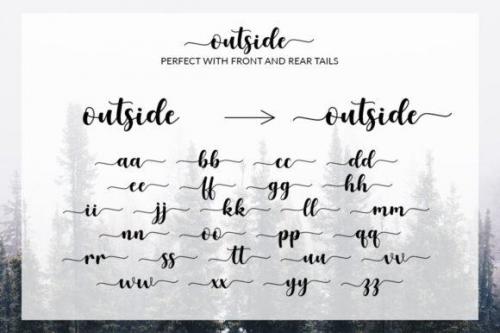 outside
PERFECT WITH FRONT AND REAR TAILS
outside → outside
aa bb cc dd
ee ff gg hh
ii jj kk ll mm
nn oo pp qq
rr ss tt uu vv
ww xx yy zz